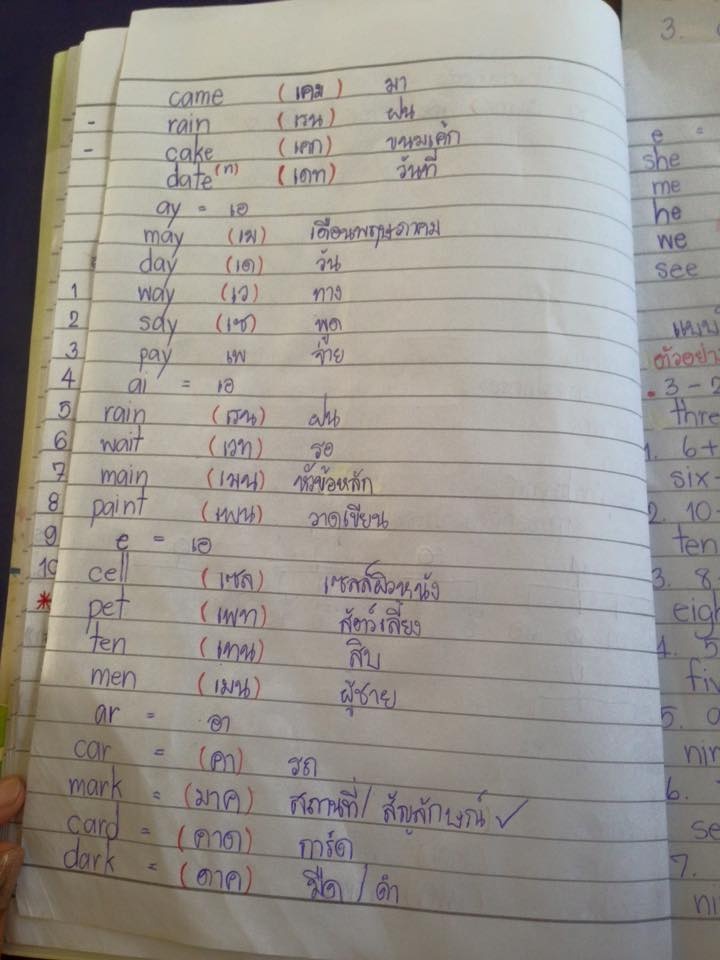 came (เคม) มา
- rain (เรน) ฝน
- cake (เคก) ขนมเค้ก
date(ท) (เดท) วันที่
ay = เอ
may (เม) เดือนพฤษภาคม
day (เด) วัน
1 way (เว) ทาง
2 say (เซ) พูด
3 pay เพ จ่าย
4 ai = เอ
5 rain (เรน) ฝน
6 wait (เวท) รอ
7 main (เมน) หัวข้อหลัก
8 paint (เพน) วาดเขียน
9 e = เอ
10 cell (เซล) เซลล์ผิวหนัง
* pet (เพท) สัตว์เลี้ยง
ten (เทน) สิบ
men (เมน) ผู้ชาย
ar = อา
car = (คา) รถ
mark = (มาค) สถานที่/ สัญลักษณ์ ✓
card = (คาด) การ์ด
dark = (ดาค) มืด / ดำ
3.
e =
she
me
he
we
see
ตัวอย่า
3 -
thre
1. 6+
six-
2. 10-
ten
3. 8
eigh
4. 5
fiv
5.
nin
6.
se
7.
ni